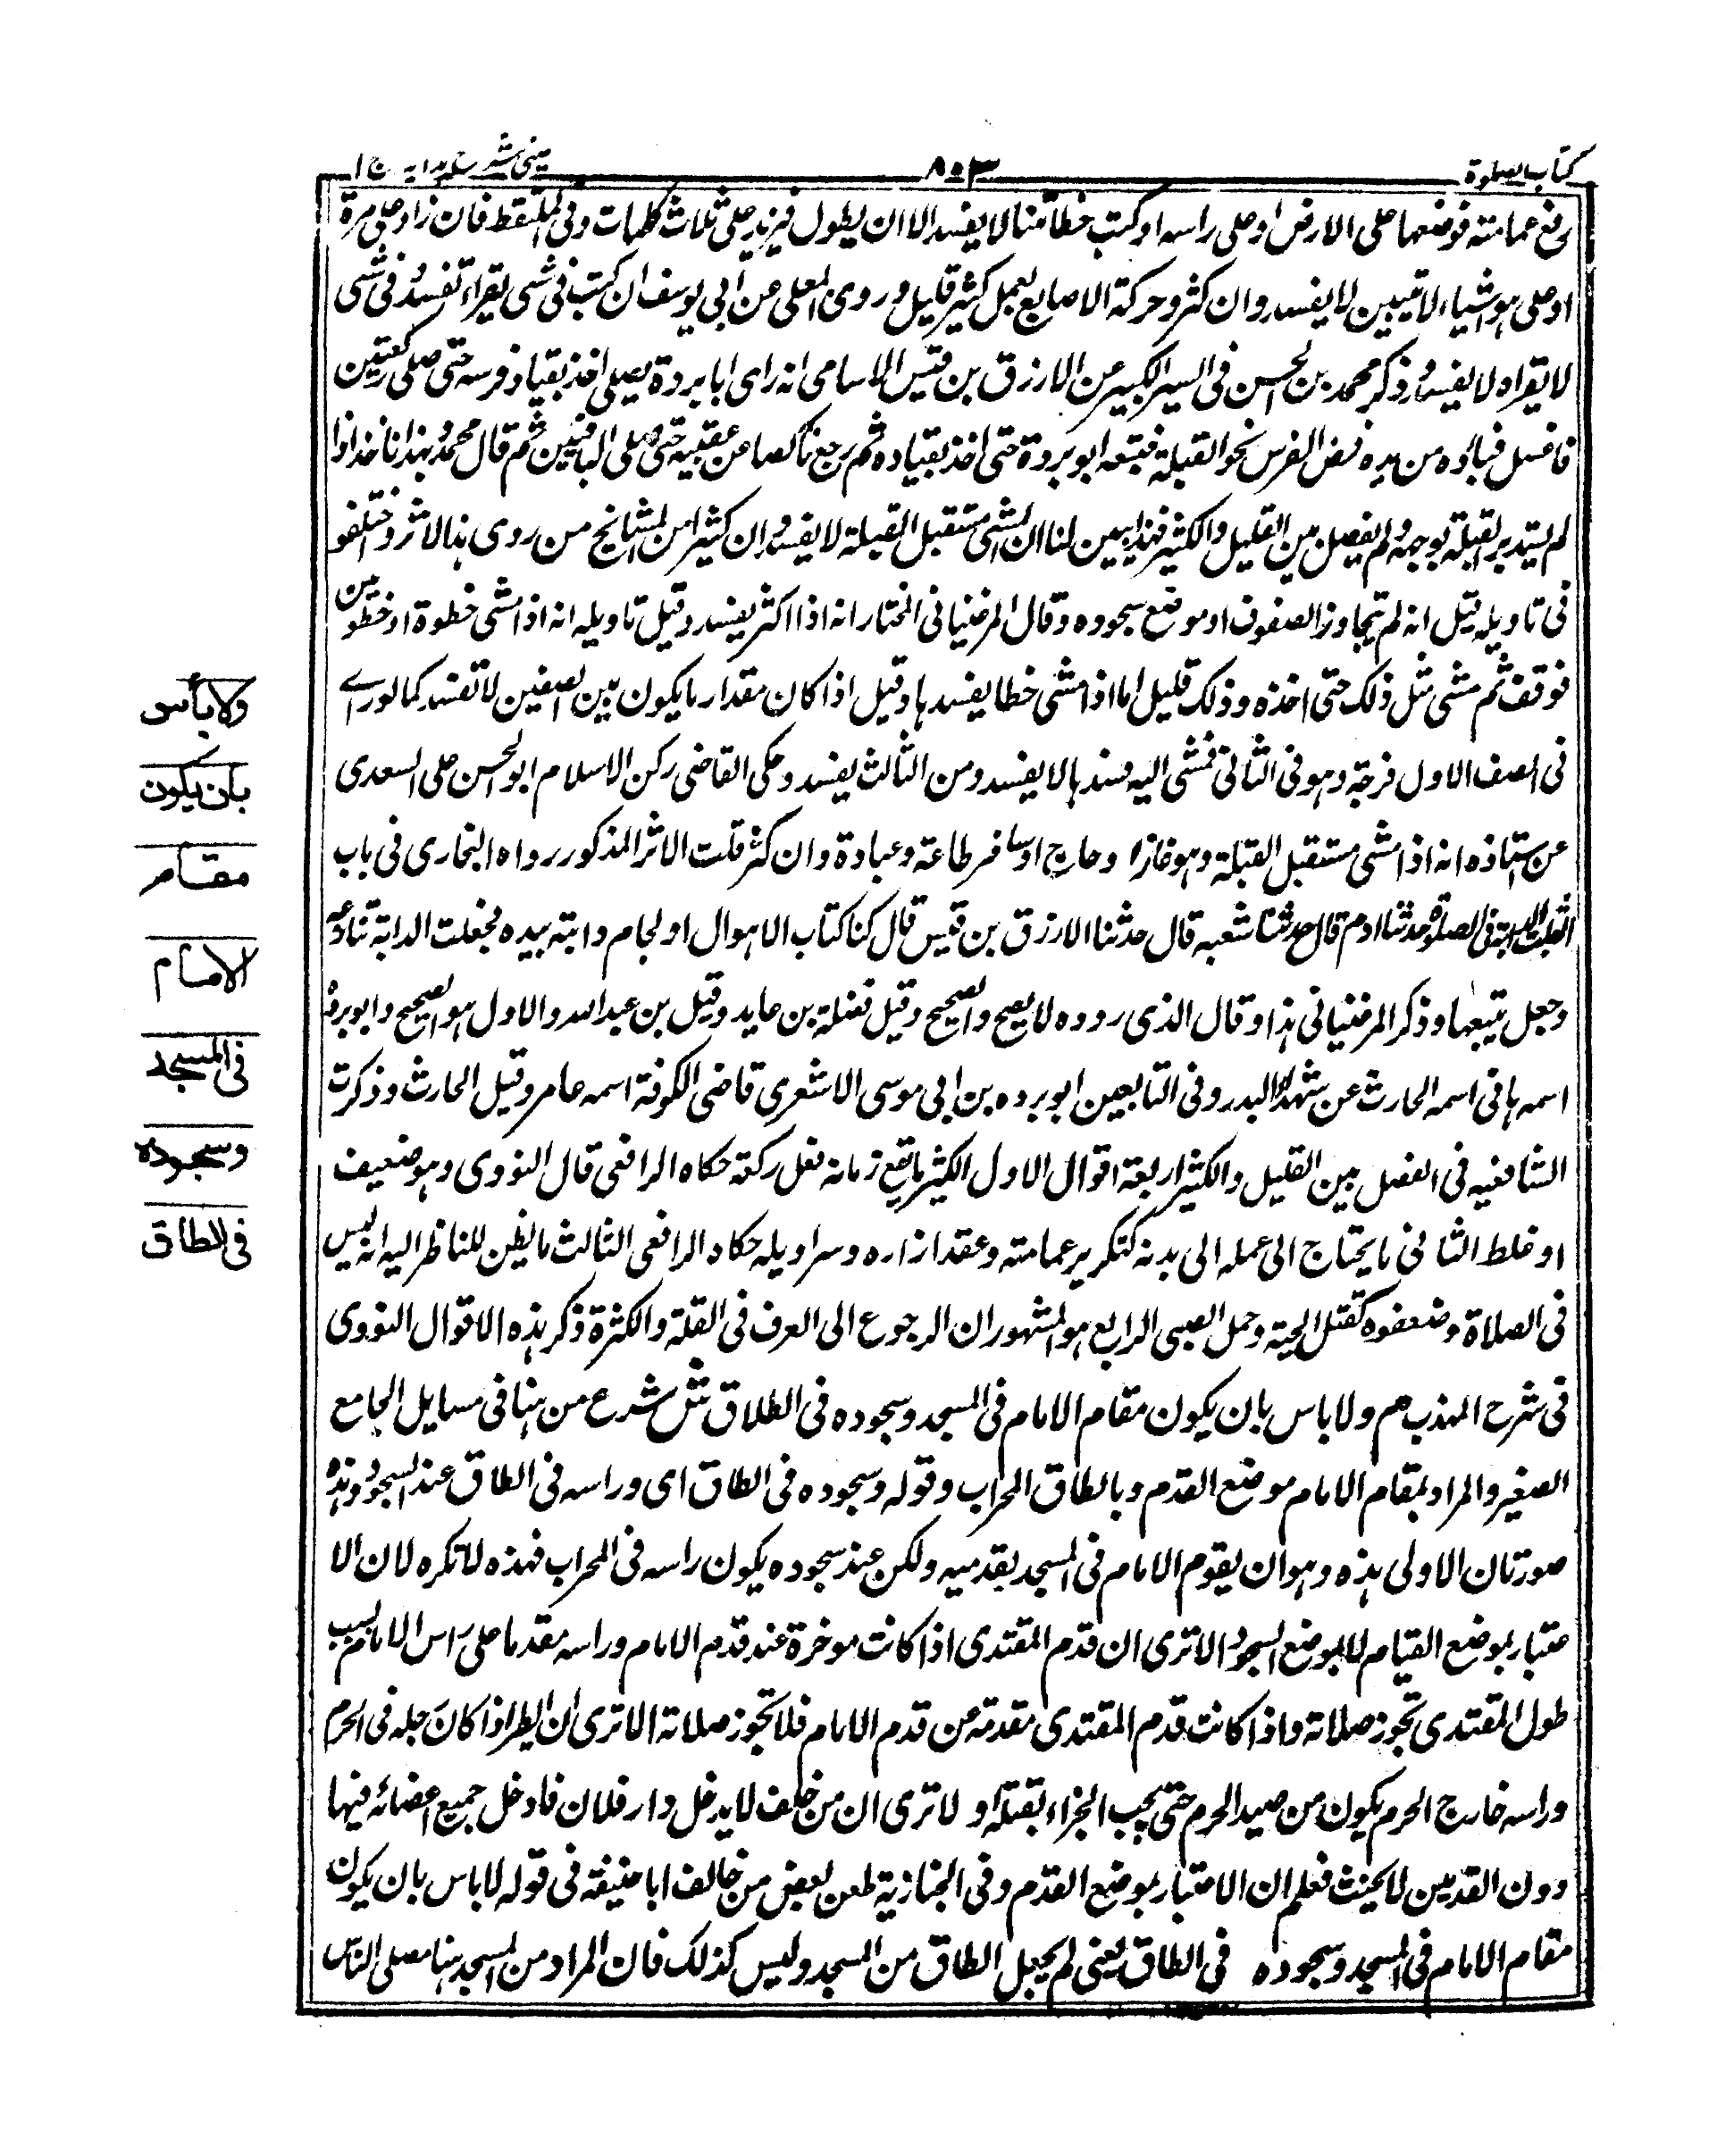 كتاب الصلوة
٨٥٣
عينى شرح هدايه ج ١
رفع عمامته فوضعها على الارض او على راسه او كتب خطأ منا لا يفسد الا ان يطول فيزيد على ثلاث كلمات وفى الملتقط فان زاد على مرة
او على هو اشياء لا تتبين لا يفسد وان كثر وحركة الاصابع لعمل كثير قليل وروى المعلى عن ابى يوسف ان كتب فى شى يقراء تفسد وفى شى
لا يقراه لا يفسد وذكر محمد بن الحسن فى السير الكبير عن الارزق بن قيس الاسامى انه راى ابا بردة يصلى اخذ بقياد فرسه حتى صلى ركعتين
فانسل قياده من يده فمض الفرس نحو القبلة فتبعه ابو بردة حتى اخذ بقياده ثم رجع ناكصا عن عقبيه حتى صلى الباقيين ثم قال محمد وبهذا ناخذ اذا
لم يستدبر القبلة بوجهه ولم يفصل بين القليل والكثير فهذا يبين لنا ان المشى مستقبل القبلة لا يفسد وان كثيرا من المشائخ من روى هذا لاثر واختلفو
فى تاويله قيل انه لم يتجاوز الصفوف او موضع سجوده وقال المرغنيانى المختار انه اذا اكثر يفسد وقيل تاويله انه اذا مشى خطوة او خطوتين
فوقف ثم مشى مثل ذلك حتى اخذه وذلك قليل اما اذا مشى خطا يفسد ها وقيل اذا كان مقدار ما يكون بين الصفين لا تفسد كما لوراے
فى الصف الاول فرجة وهو فى الثانى فمشى اليه فسد ها لا يفسد ومن الثالث يفسد وحكى القاضى ركن الاسلام ابو الحسن على السعدى
عن استاذه انه اذا مشى مستقبل القبلة وهو غازا وحاج او سافر طاعة وعبادة وان كثر قلت الاثر المذكور رواه البخارى فى باب
انفلت الدابة فى الصلوة حدثنا ادم قال حدثنا شعبه قال حدثنا الارزق بن قيس قال كنا كتاب الاهوال او لجام دابته بيده فجعلت الدابة تنازعه
وجعل يتبعها وذكر المرغنيانى هذا وقال الذى رووه لا يصح والصحيح وقيل نضلة بن عايد وقيل بن عبدالله والاول هو الصحيح وابو بردة
اسمه هانى اسمه الحارث عن شهد البدر وفى التابعين ابو برده بن ابى موسى الاشعرى قاضى الكوفة اسمه عامر وقيل الحارث وذكرت
الشافعيه فى الفصل بين القليل والكثير اربعة اقوال الاول الكثير ما يقع زمانه فعل ركعة حكاه الرافعى قال النووى وهو ضعيف
او غلط الثانى ما يحتاج الى عمله الى بدنه كتكرير عمامته وعقد ازاره وسراويله حكاه الرافعى الثالث ما يظن للناظر اليه انه ليس
فى الصلاة وضعفوه كقتل الحية وحمل الصبى الرابع هو المشهور ان الرجوع الى العرف فى القلة والكثرة ذكر هذه الاقوال النووى
فى شرح المهذب هم ولا باس بان يكون مقام الامام فى المسجد وسجوده فى الطلاق ش شرع من هنا فى مسايل الجامع
الصغير والمراد بمقام الامام موضع القدم وبالطاق المحراب وقوله وسجوده فى الطاق اى وراسه فى الطاق عند السجود وهذه
صورتان الاولى هذه وهو ان يقوم الامام فى المسجد بقدميه ولكن عند سجوده يكون راسه فى المحراب فهذه لا تكره لان الا
عتبار بموضع القيام لا بموضع السجود الا ترى ان قدم المقتدى اذا كانت موخرة عند قدم الامام وراسه مقدما على راس الامام بسبب
طول المقتدى تجوز صلاته واذا كانت قدم المقتدى مقدمة عن قدم الامام فلا تجوز صلاته الا ترى ان الطير اذا كان رجله فى الحرم
وراسه خارج الحرم يكون من صيد الحرم حتى يجب الجزاء بقتله او لا ترى ان من حلف لا يدخل دار فلان فادخل جميع اعضائه فيها
دون القدمين لا يحنث فعلم ان الاعتبار بموضع القدم وفى الخبازية طعن بعض من خالف ابا حنيفه فى قوله لا باس بان يكون
مقام الامام فى المسجد وسجوده فى الطاق يعنى لم يجعل الطاق من المسجد وليس كذلك فان المراد من المسجد هنا مصلى الناس
ولا بأس
بان يكون
مقام
الامام
فى المسجد
وسجوده
فى الطاق